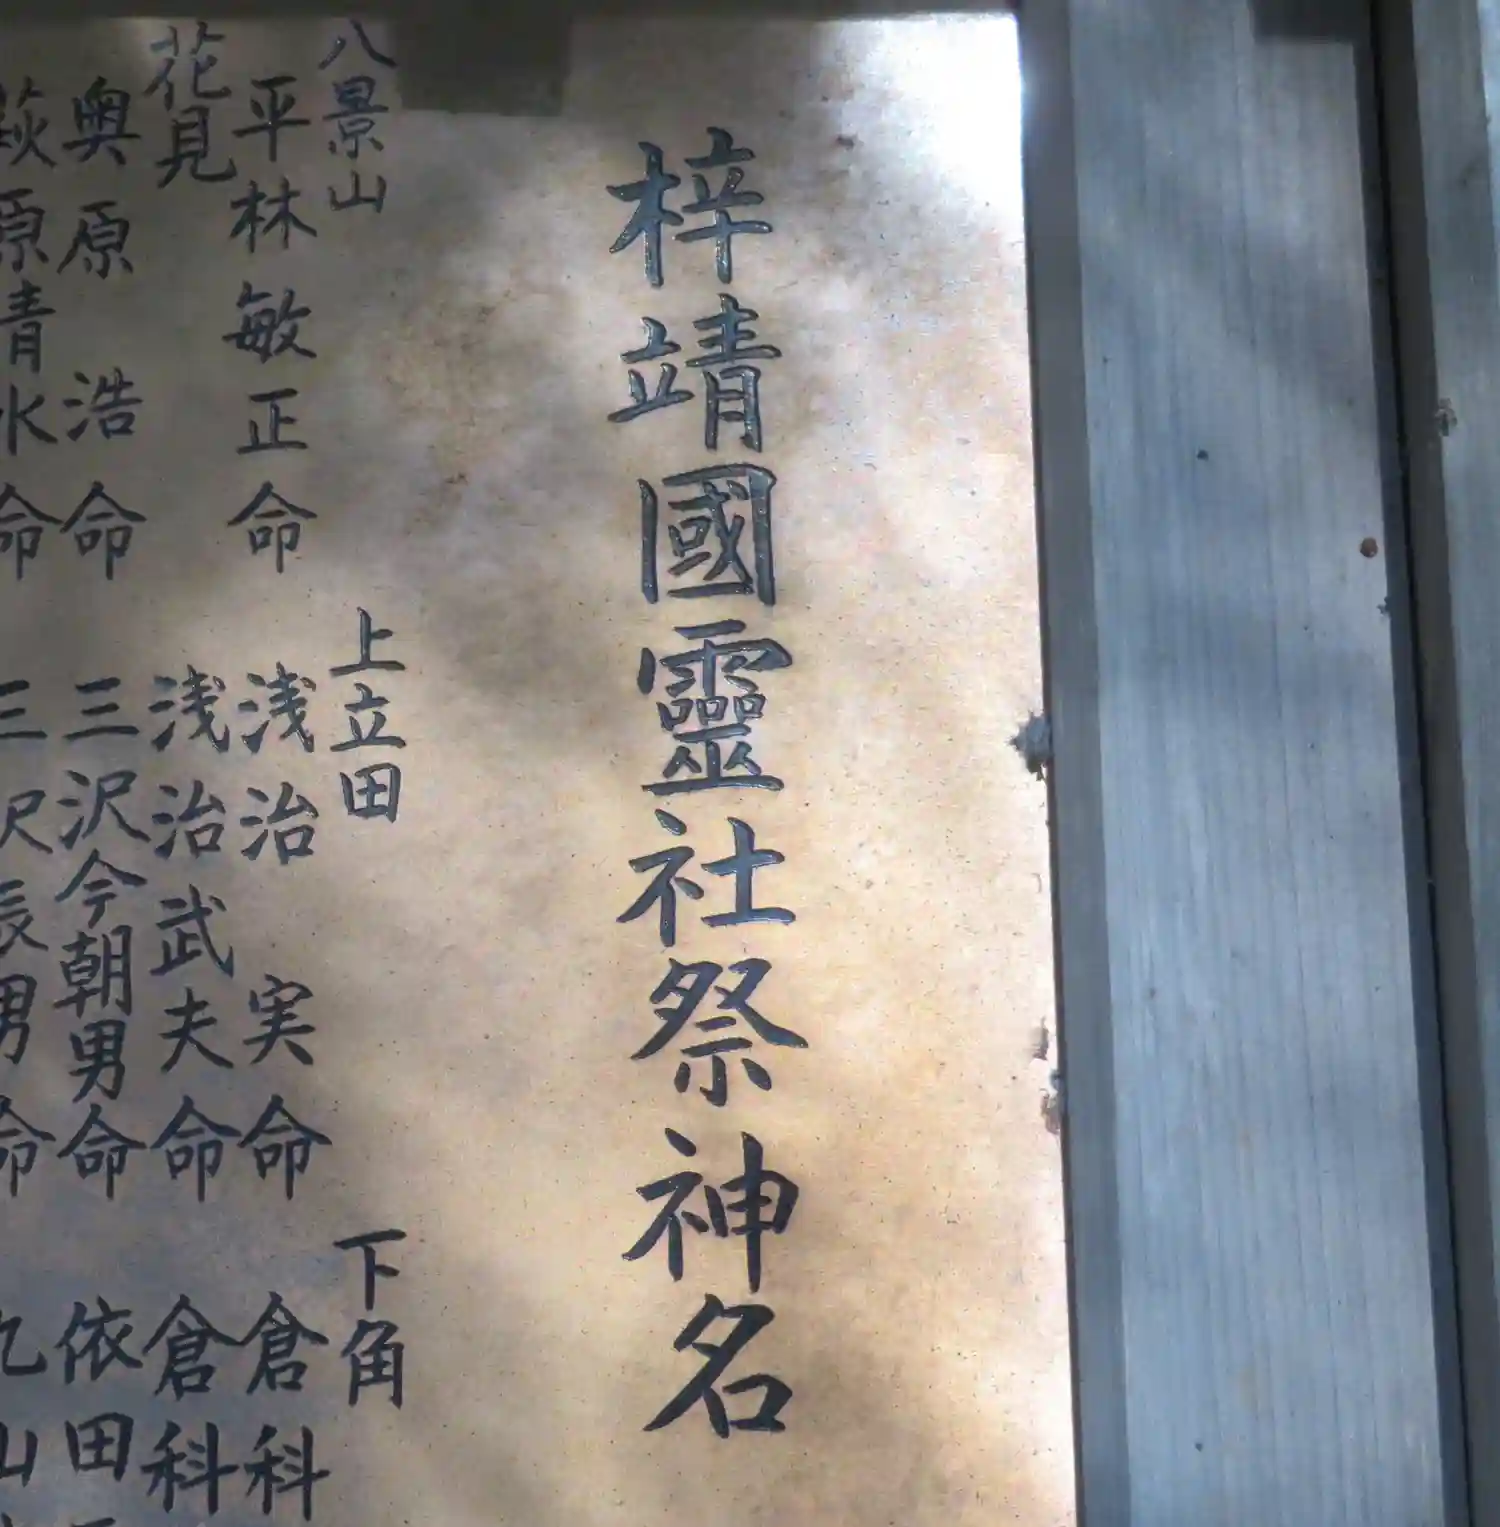 梓靖國靈社祭神名
八景山
平林敏正命
花見
奥原浩命
萩原青水命
上立田
浅治実命
浅治武夫命
三沢今朝男命
三沢辰男命
下角
倉科
倉科
依田
丸山